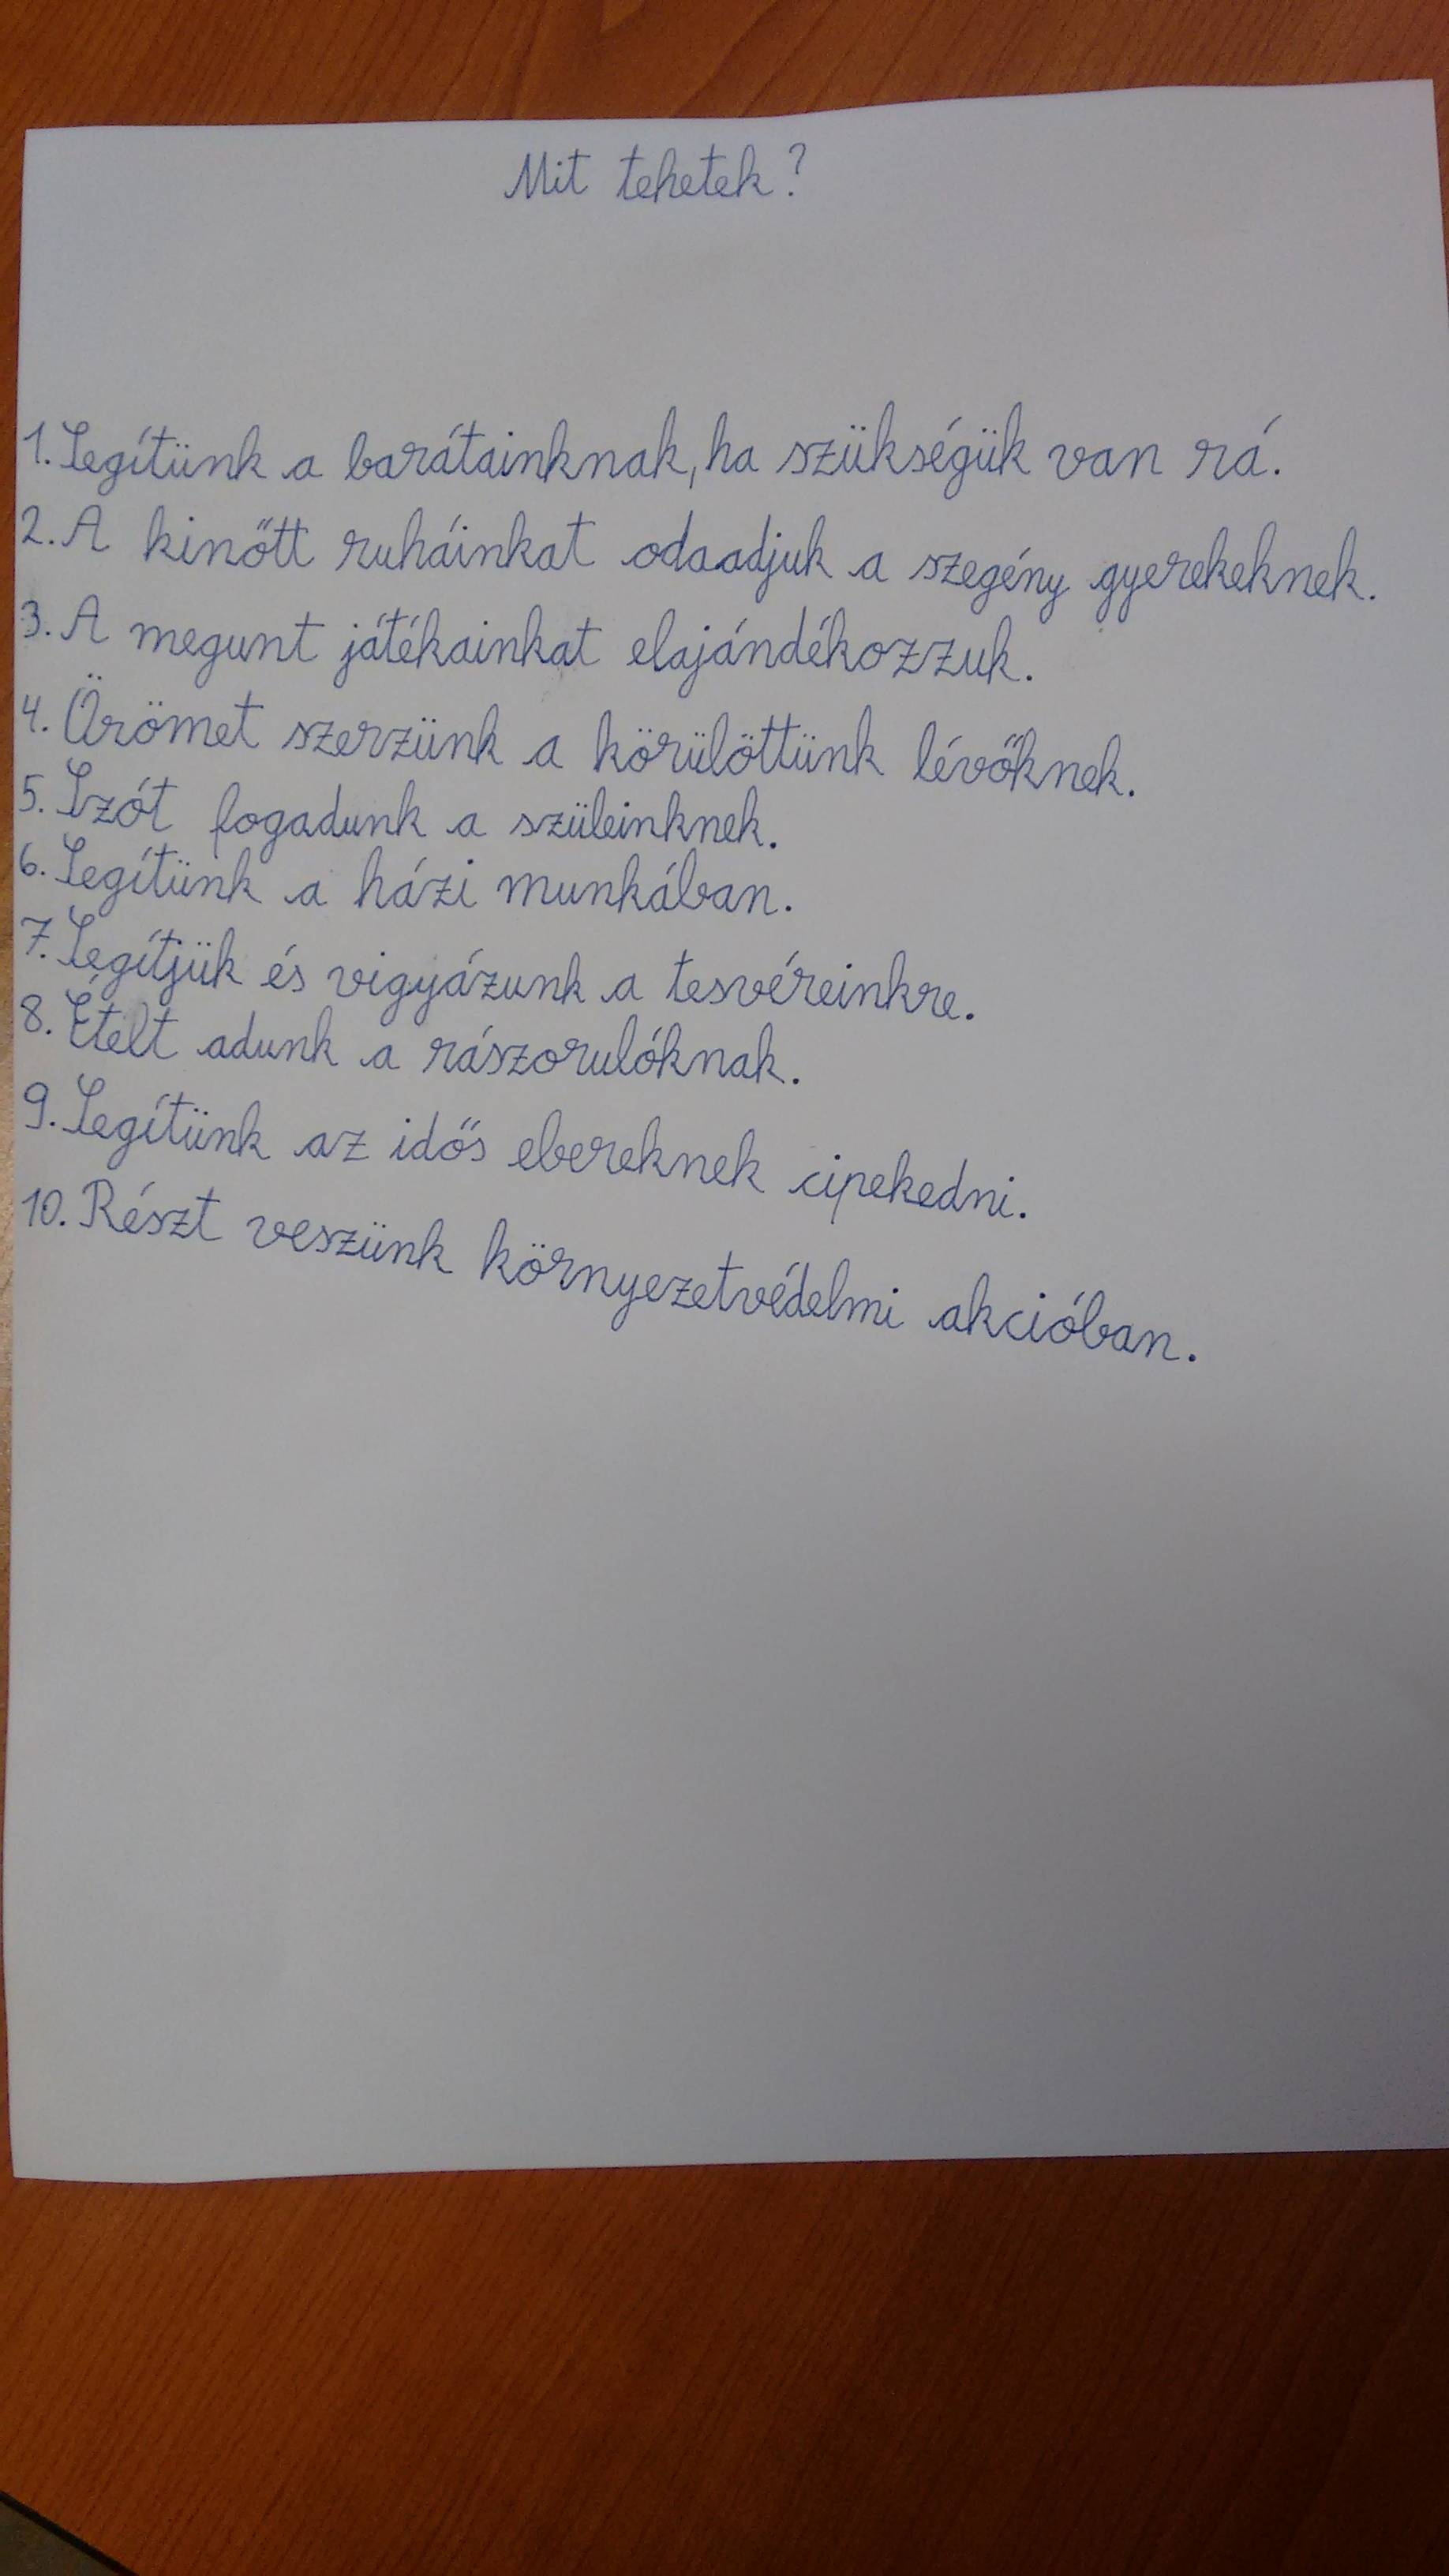 Mit tehetek?
1. Segítünk a barátainknak, ha szükségük van rá.
2. A kinőtt ruháinkat odaadjuk a szegény gyerekeknek.
3. A megunt játékainkat elajándékozzuk.
4. Örömet szerzünk a körülöttünk lévőknek.
5. Szót fogadunk a szüleinknek.
6. Segítünk a házi munkában.
7. Segítjük és vigyázunk a tesvéreinkre.
8. Ételt adunk a rászorulóknak.
9. Segítünk az idős ebereknek cipekedni.
10. Részt veszünk környezetvédelmi akcióban.